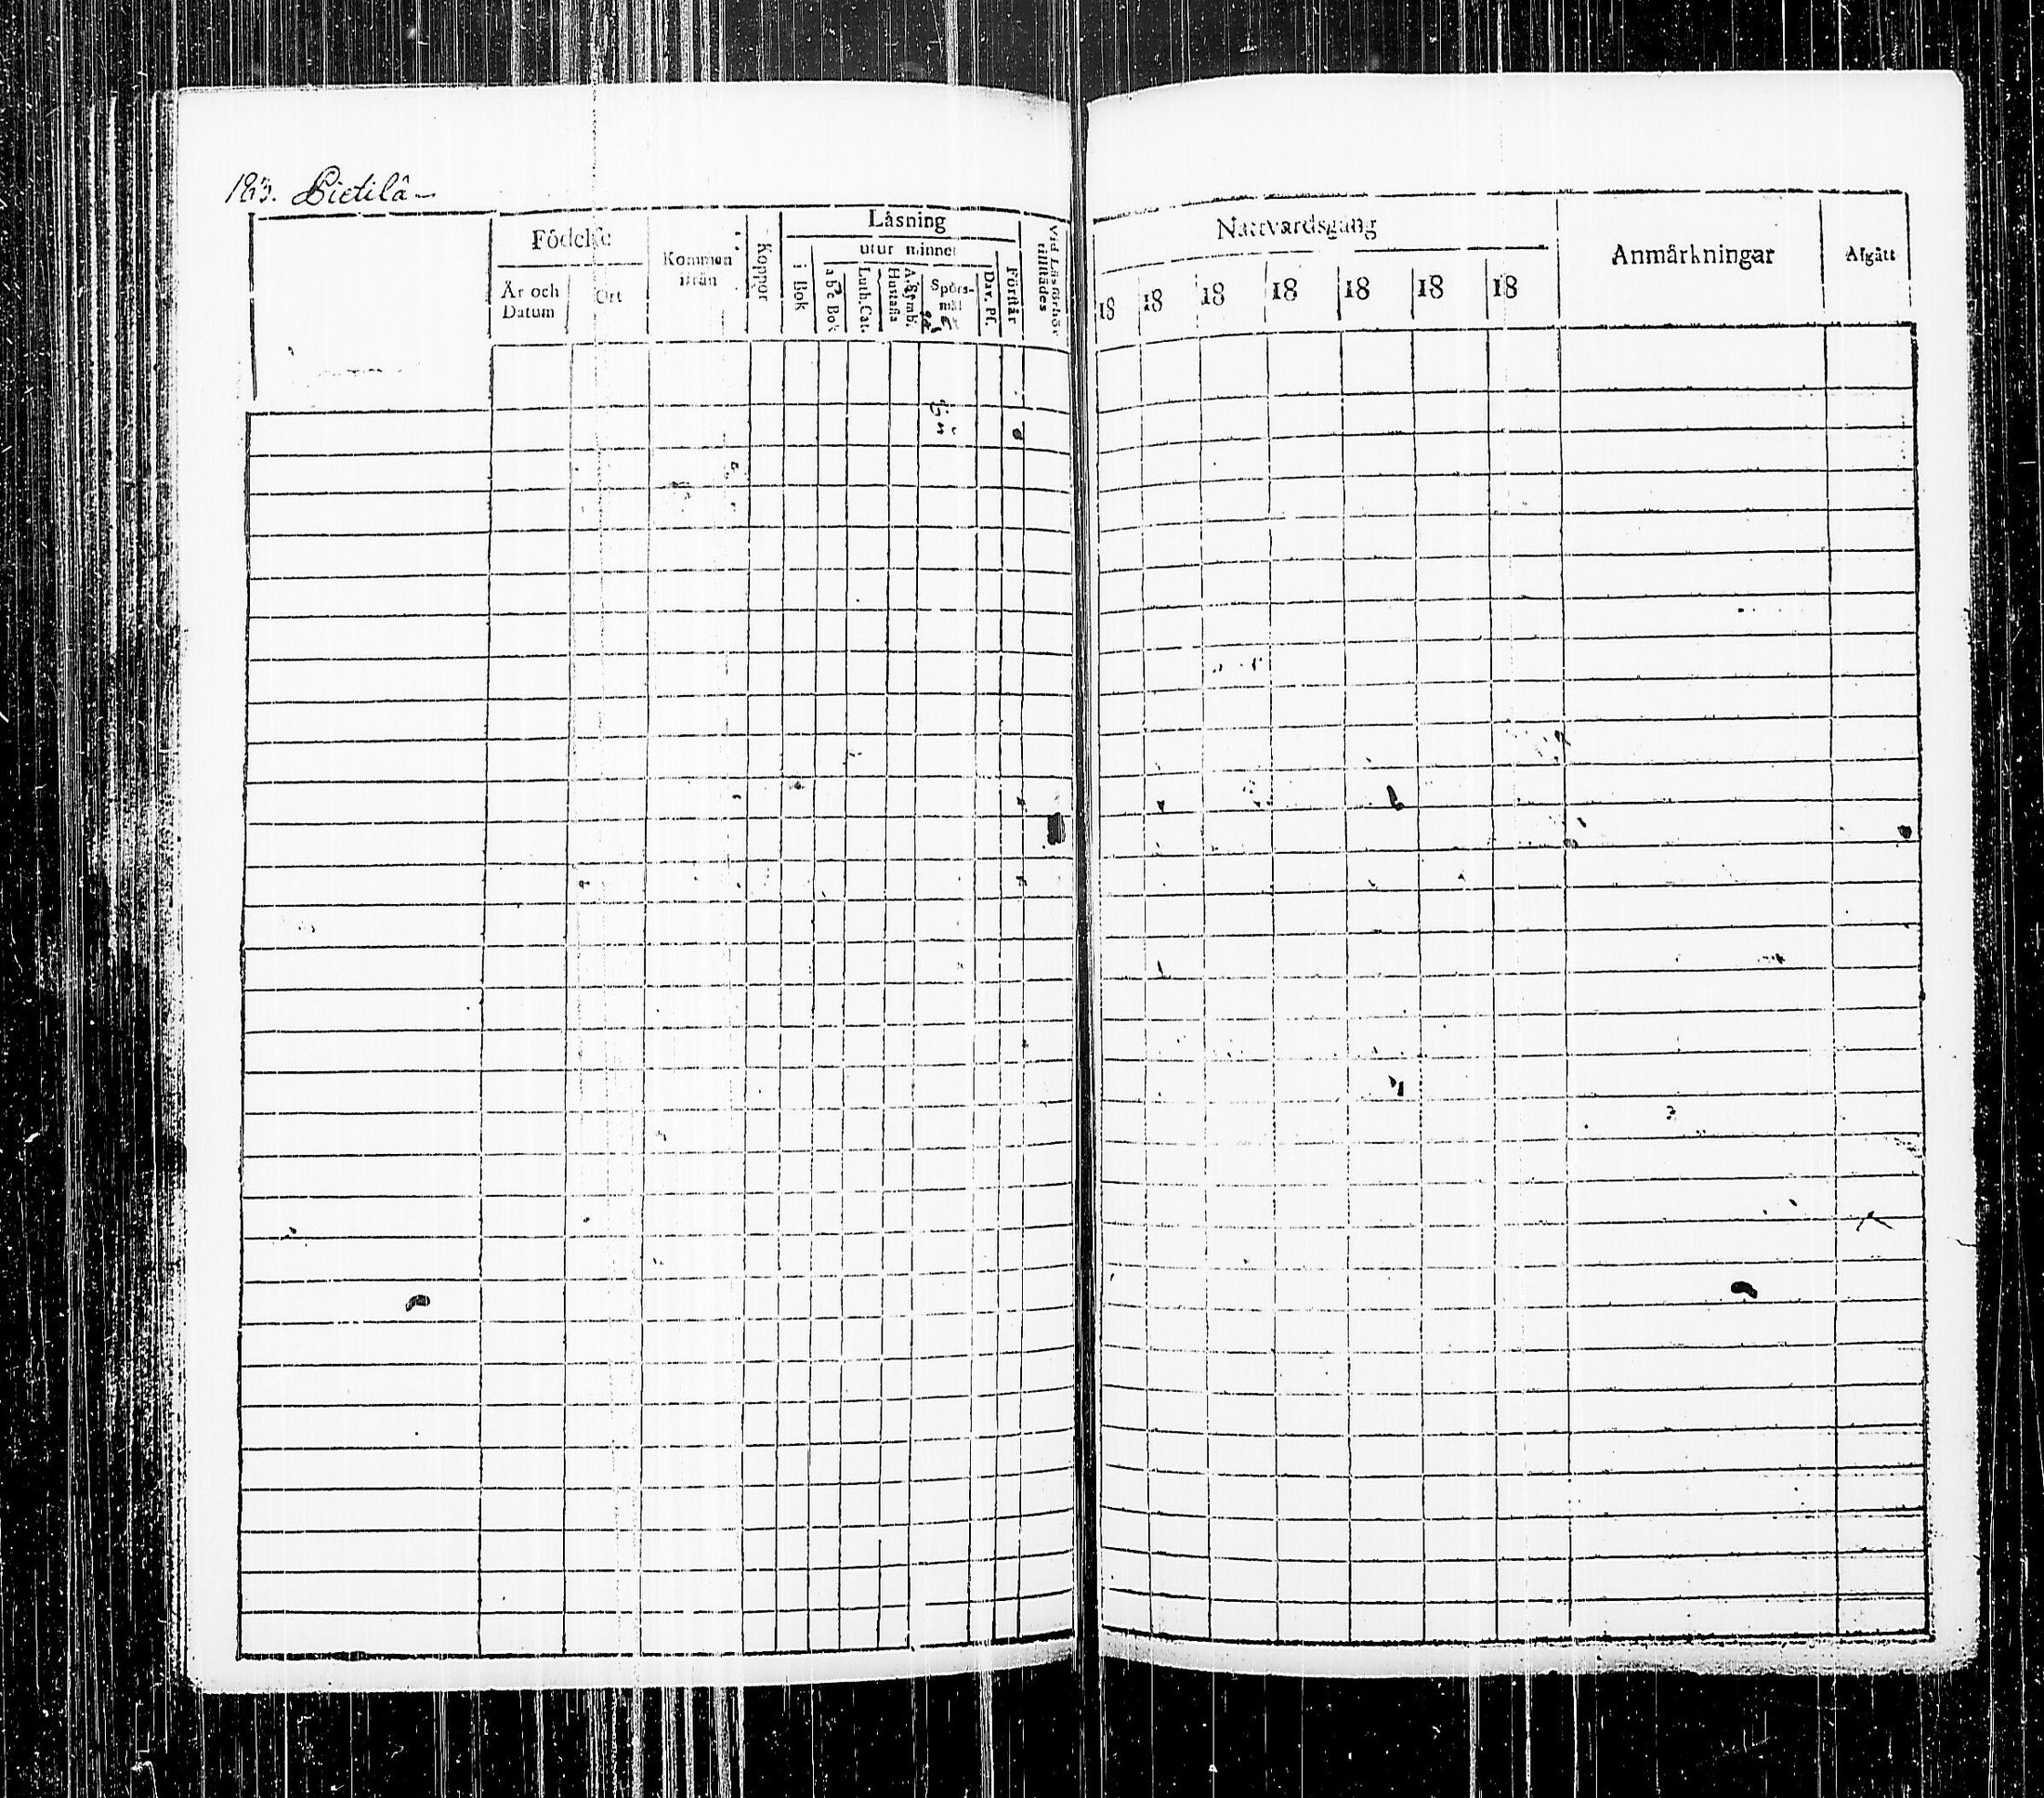 183. Pietilä
Födelse
År och Datum
Ort
Kommen ifrån
Koppor
Läsning
utur minnet
i Bok
a b c Bok
Luth. Cat.
Hustafla
A. Symb.
Spörsmål
Dav. Pf.
Förstår
Vid Läsförhör tillstädes
Nattvardsgång
18 18 18 18 18 18 18
Anmärkningar
Afgått